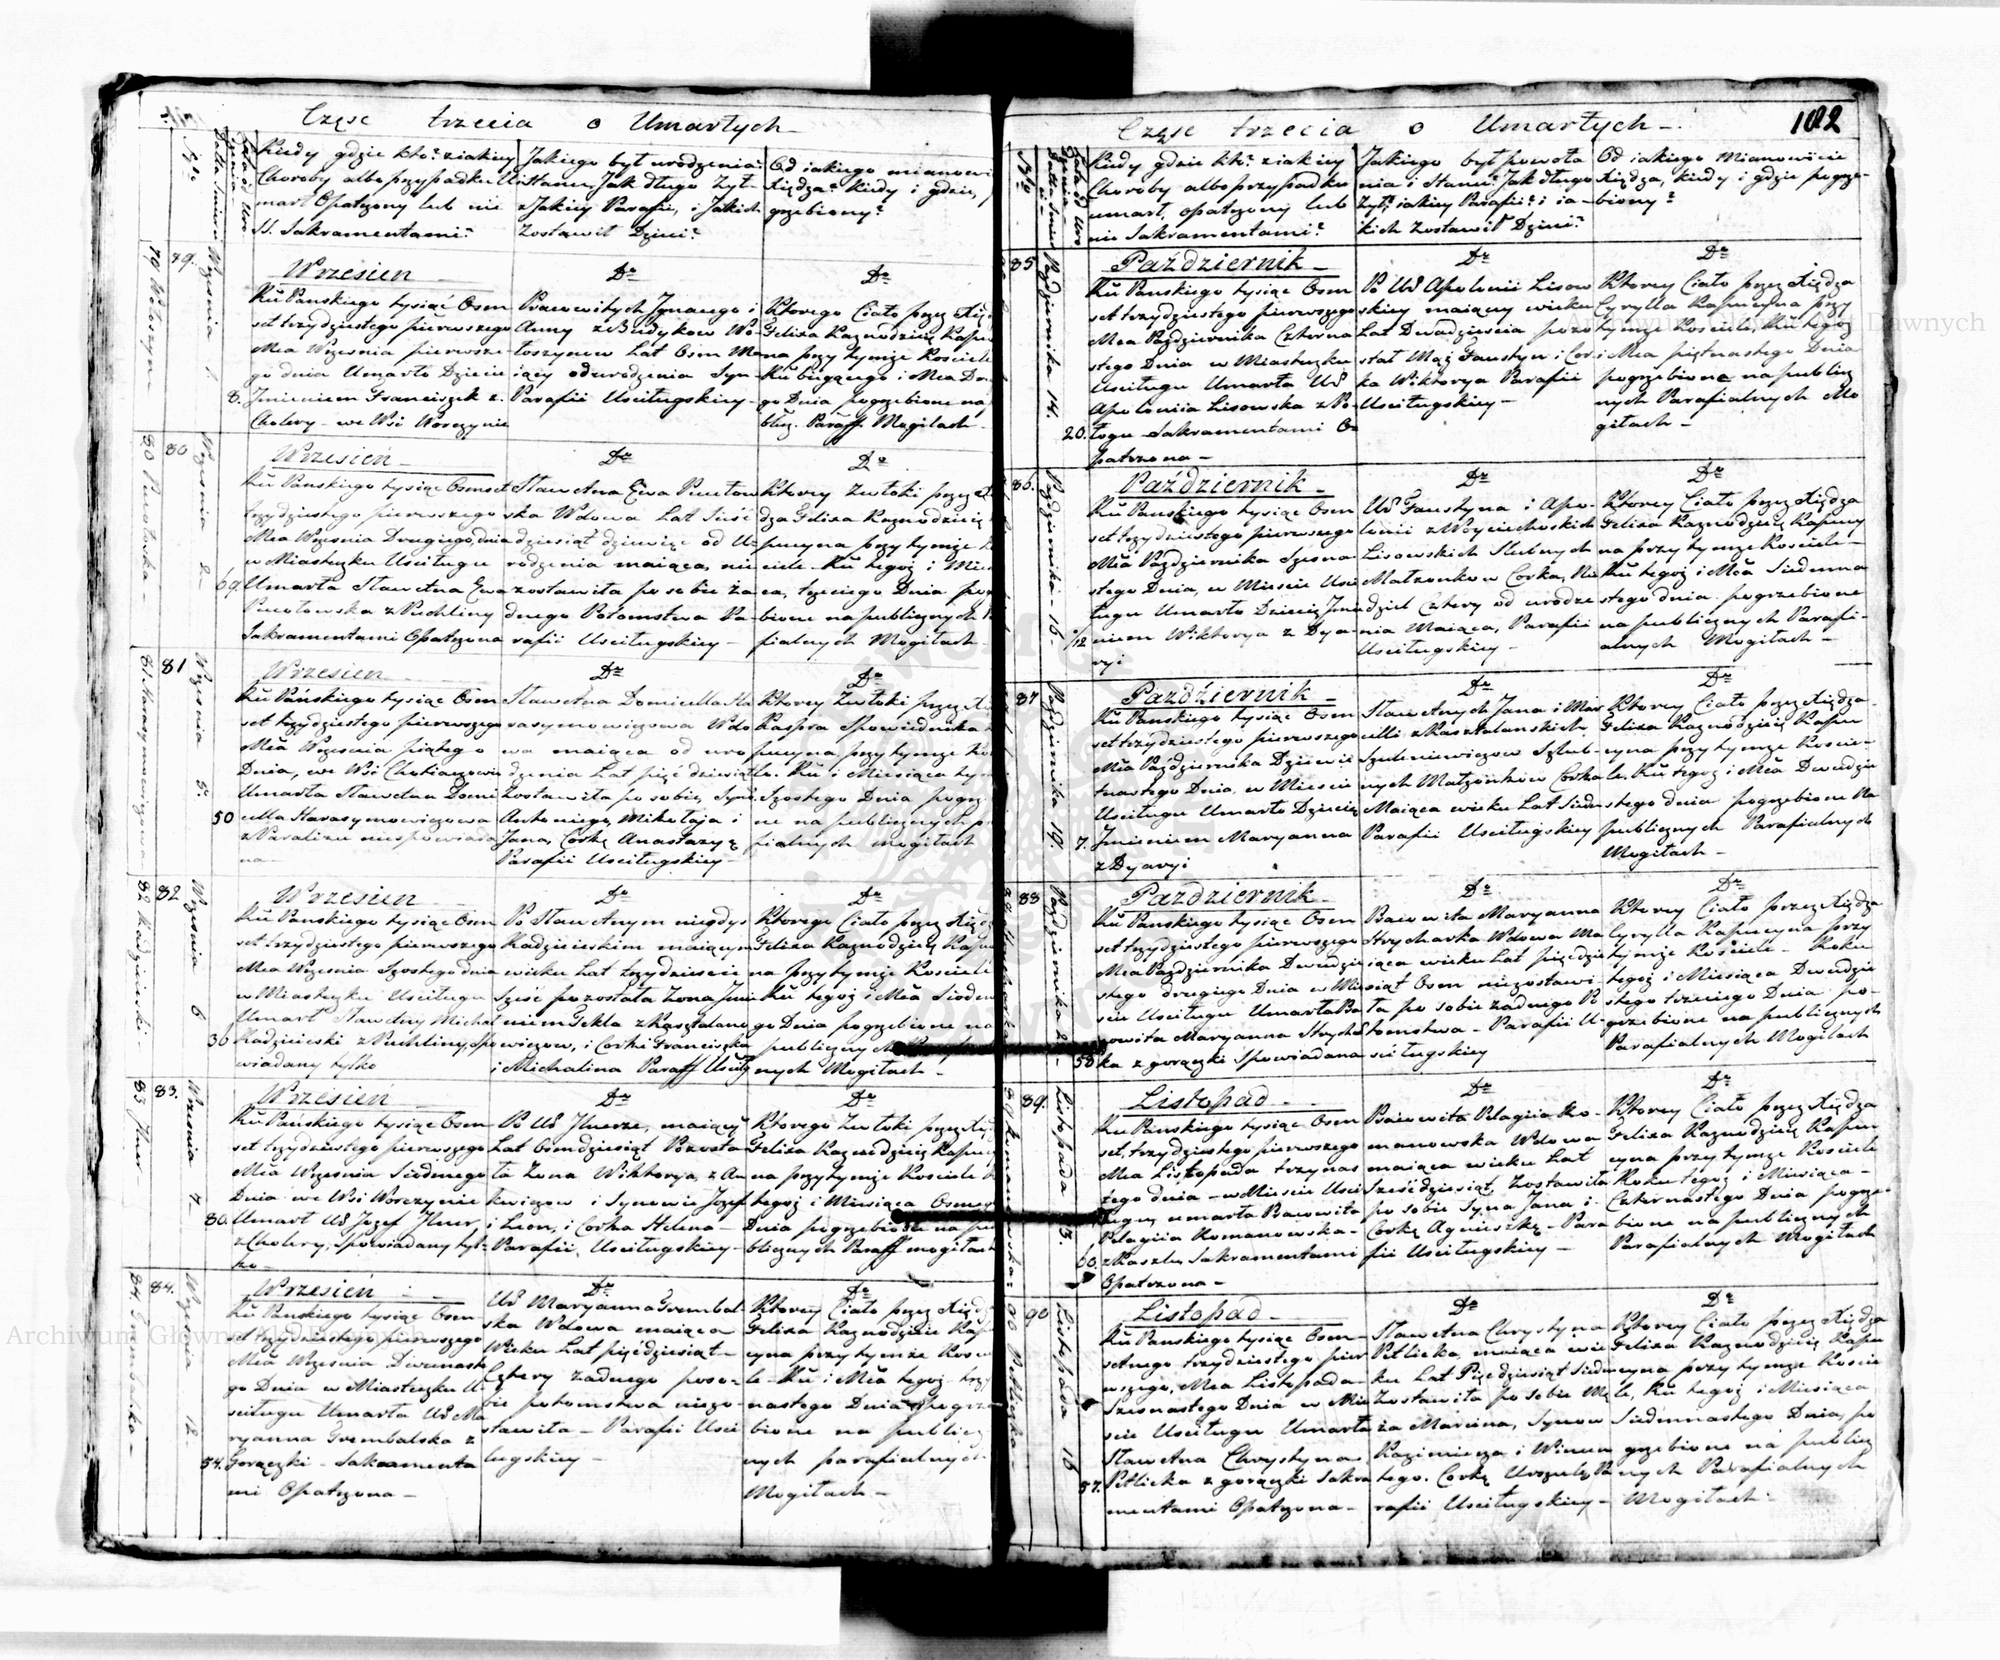 Część trzecia o Umarłych
Kiedy gdzie kto? z iakiey
Choroby albo przypadku U
marł Opatrzony lub nie
SS. Sakramentami?
Jakiego był urodzenia?
i Stanu, Jak długo Żył
z Jakiey Parafii, i Jakich
Zostawił Dzieci?
Od iakiego mianowi
Xiędza? kiedy i gdzie,
grzebiony?
79.
Września 1.
8.
Wrzesien
Ru Panskiego tysiąć Osm
set trzydziestego pierwszego
Mca Września pierwsze
go dnia Umarło Dziecie
Jmieniem Franciszek z
Cholery we Wsi Worczynie
Dto
Pracowitych Jgnacego i
Anny z Budykow Wo
łoszynow Lat Osm Ma
iący od urodzenia Syn
Parafii Usciługskiey
Dto
Ktorego Ciało przez Xię
Felixa Kaznodzieię Kapu
na przy tymże Kościele
Ru biegącego i Mca Dru
go Dnia pogrzebione na
Paraff. Mogiłach
80
Września 2
69.
Wrzesień
Ru Panskiego tysiąc Osmset
trzydziestego pierwszego
Mca Września Drugiego, dnia
w Miasteczku Usciługu
Umarła Sławetna Ewa
z Puchliny
Sakramentami Opatrzona
Dto
Sławetna Ewa
ska Wdowa Lat Sześć
dziesiąt dziewięć od U
rodzenia maiąca, nie
zostawiła po sobie ża
dnego Potomstwa Pa
rafii Usciługskiey
Dto
Ktorey Zwłoki przez X
dza Felixa Kaznodzieię
pucyna przy tymże K
ściele Ru tegoż i Mie
ca, trzeciego Dnia po
bione na publicznych P
fialnych Mogiłach
81
Września 5.
50
Wrzesien
Ru Pańskiego tysiąc Osm
set trzydziestego pierwszego
Mca Września piątego
Dnia, we Wsi
Umarła Sławetna Domi
cella Harasymowiczowa
z Paraliżu niespowiada
na
Dto
Sławetna Domicella Ha
rasymowiczowa Wdo
wa maiąca od uro
dzenia Lat pięć dziesiąt
Zostawiła po sobie, Syn
Antoniego, Mikołaja i
Jana, Corkę Anastazyę
Parafii Usciługskiey
Dto
Ktorey Zwłoki przez X
Kaspra Spowiednika
pucyna przy tymże Ko
le. Ru i Miesiąca ty
Szostego Dnia pogrz
ne na publicznych p
fialnych Mogiłach
82
Września 6
36
Wrzesien
Ru Panskiego tysiąc Osm
set trzydziestego pierwszego
Mca Września Szostego dnia
w Miasteczku Usciługu
Umarł Sławetny Michał
Radzieieski z Puchliny, Spo
wiadany tylko
Dto
Po Sławetnym niegdys
Radzieieskim maiącym
wieku Lat trzydzieście
Sześć pozostała Żona Jmie
niem Tekla z Kasztelano
wiczow, i Corki Franciszka
i Michalina Paraff Usciłg
Dto
Ktorego Ciało przez Xię
Felixa Kaznodzieię Kapu
na przy tymże Kościele
Ru tegoż i Mca Siodm
go Dnia pogrzebione na
publicznych
nych Mogiłach
83.
Września 7
80.
Wrzesień
Ru Pańskiego tysiąc Osm
set trzydziestego pierwszego
Mca Września Siodmego
Dnia we Wsi Worczynie
Umarł Ur Jozef Jlner
z Cholery, Spowiadany tyl
ko
Dto
Po Ur Jlnerze, maiący
Lat Osmdziesiąt Pozosta
ła Żona Wiktorya, z
kwiczow i Synowie Jozef
i Leon, i Corka Helena
Parafii, Usciługskiey
Dto
Ktorego Zwłoki przez Xię
Felixa Kaznodzieię Kapu
na przy tymże Kościele
tegoż i Miesiąca Osmego
Dnia pogrzebione na pu
blicznych Paraff mogiłach
84.
Września 12
54.
Wrzesień
Ru Panskiego tysiąc Osm
set trzydziestego pierwszego
Mca Września Dwunaste
go Dnia w Miasteczku U
sciługu Umarła Ur Ma
ryanna Grembalska z
Gorączki Sakramenta
mi Opatrzona
Dto
Ur Maryanna Grembal
ska Wdowa maiąca
Wieku Lat pięćdziesiąt
Cztery żadnego poso
bie potomstwa niezo
stawiła Parafii Usci
ługskiey
Dto
Ktorey Ciało przez Xięd
Felixa Kaznodzieie Kap
cyna przy tymże Kosci
le Ru i Mca tegoż trzy
nastego Dnia pogrze
bione na publicz
nych parafialnych
Mogiłach
102
Część trzecia o Umarłych
Kiedy gdzie kto? z iakiey
Choroby albo przypadku
umarł, opatrzony lub
nie Sakramentami?
Jakiego był powoła
nia i Stanu? Jak długo
Żył? iakiey Parafii? i ia
kich Zostawił Dzieci?
Od iakiego Mianowicie
Xiędza, kiedy i gdzie pogrze
biony?
85
Października 14.
20.
Październik
Ru Panskiego tysiąc Osm
set trzydziestego pierwszego
Mca Października Czterna
stego Dnia w Miasteczku
Usciługu Umarła Ur
Apolonia Lisowska z Po
łogu Sakramentami O
patrzona
Dto
Po Ur Apolonii Lisow
skiey maiącey wieku
Lat Dwadzieścia pozo
stał Mąż Faustyn i Cor
ka Wiktorya Parafii
Usciługskiey
Dto
Ktorey Ciało przez Xiędza
Cyrylla Kapucyna przy
tymże Kościele, Ru tegoż
i Mca piętnastego Dnia
pogrzebione na publicz
nych Parafialnych Mo
giłach
86.
Października 16
Październik
Ru Panskiego tysiąc Osm
set trzydziestego pierwszego
Mca Października Szesna
stego Dnia, w Miescie Usci
ługu Umarło Dziecię Jmie
niem Wiktorya z Dya
ryi
Dto
Ur Faustyna i Apo
lonii z Woyciechoskich
Lisowskich Slubnych
Małżonkow Corka, Nie
dziel Cztery od urodze
nia Maiąca, Parafii
Usciługskiey
Dto
Ktorey Ciało przez Xiędza
Felixa Kaznodzieię Kapucy
na przy tymże Kościele
Ru tegoż i Mca Siedmna
stego dnia pogrzebione
na publicznych Parafi
alnych Mogiłach
87
Października 19.
7.
Październik
Ru Panskiego tysiąc Osm
set trzydziestego pierwszego
Mca Października Dziewię
tnastego Dnia, w Miescie
Usciługu Umarło Dziecię
Jmieniem Maryanna
z Dyaryi
Dto
Sławetnych Jana i Mar
celli z Kasztelanskich
Szuleniewiczow Szlub
nych Małżonkow Corka
Maiąca wieku Lat Siedm
Parafii Usciługskiey
Dto
Ktorey Ciało przez Xiędza
Felixa Kaznodzieię Kapu
cyna przy tymże Koscie
le, Ru tegoż i Mca Dwudzie
stego dnia pogrzebione Na
publicznych Parafialnych
Mogiłach
88
Października 22
58.
Pazdziernik
Ru Panskiego tysiąc Osm
set trzydziestego pierwszego
Mca Października Dwudzie
stego drugiego Dnia w Mie
scie Usciługu Umarła Pra
cowita Maryanna Strychar
ka z gorączki Spowiadana
Dto
Pracowita Maryanna
Strycharka Wdowa Ma
iąca wieku Lat pięćdzie
siąt Osm niezostawi
ła po sobie żadnego Po
tomstwa Parafii U
sciługskiey
Dto
Ktorey Ciało przez Xiędza
Cyrylla Kapucyna przy
tymże Kościele Roku
tegoż i Miesiąca Dwudzie
stego trzeciego Dnia po
grzebione na publicznych
Parafialnych Mogiłach
89.
Listopada 13
60.
Listopad
Ru Pańskiego tysiąc Osm
set, trzydziestego pierwszego
Mca Listopada trzynas
tego dnia w Miescie Usci
ługu, umarła Pracowita
Pelagiia Romanowska
z Kaszlu, Sakramentami
Opatrzona
Dto
Pracowita Pelagiia Ro
manowska Wdowa
maiąca wieku Lat
Sześćdziesiąt Zostawiła
po sobie Syna Jana i
Corkę Agnieszkę Para
fii Usciługskiey
Dto
Ktorey Ciało przez Xiędza
Felixa Kaznodzieię Kapu
cyna przy tymże Kościele
Roku tegoż i Miesiąca
Czternastego Dnia pogrze
bione na publicznych
Parafialnych Mogiłach
90
Listopada 16
57.
Listopad
Ru Panskiego tysiąc Osm
setnego trzydziestego pier
wszego, Mca Listopada
Szesnastego Dnia w Mie
scie Usciługu Umarła
Sławetna Chrystyna
Petlicka z gorączki Sakra
mentami Opatrzona
Dto
Sławetna Chrystyna
Petlicka, maiąca wie
ku Lat Pięćdziesiąt Siedm
Zostawiła po sobie Mę
ża Marcina, Synow
Kazimierza i Wincen
tego. Corkę Urszulę Pa
rafii Usciługskiey
Dto
Ktorey Ciało przez Xiędza
Felixa Kaznodzieię Kapu
cyna przy tymże Koscie
le, Ru tegoż i Miesiąca
Siedmnastego Dnia, po
grzebione na publicz
nych Parafialnych
Mogiłach